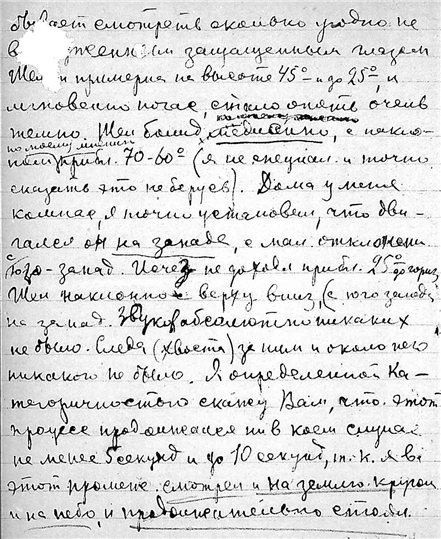 бывает смотреть сколько угодно не
в женным защищенным глазом
Шел н примерно на высоте 45° и до 25°, и
мгновенно погас, стало опять очень
темно. Шел болид, с накло-
по моему мнению
ном прибл. 70-60° (я не специал. и точно
сказать это не берусь). Дома у меня
компас, я точно установил, что дви-
гался он на западе, с мал. отклонени
юго-запад. Исчез не доходя прибл. 25° до гориз
Шел наклонно верху вниз, (с юго запада
на запад. Звуков абсолютно никаких
не было. Следа (хвоста) за ним и около него
никакого не было. Я определенной ка-
тегоричностью скажу Вам, что этот
процесс продолжался ни в коем случае
не менее 5 секунд и до 10 секунд, т.к. я в
этот промеж. смотрел и на землю кругом
и на небо, и продолжительно стоял.